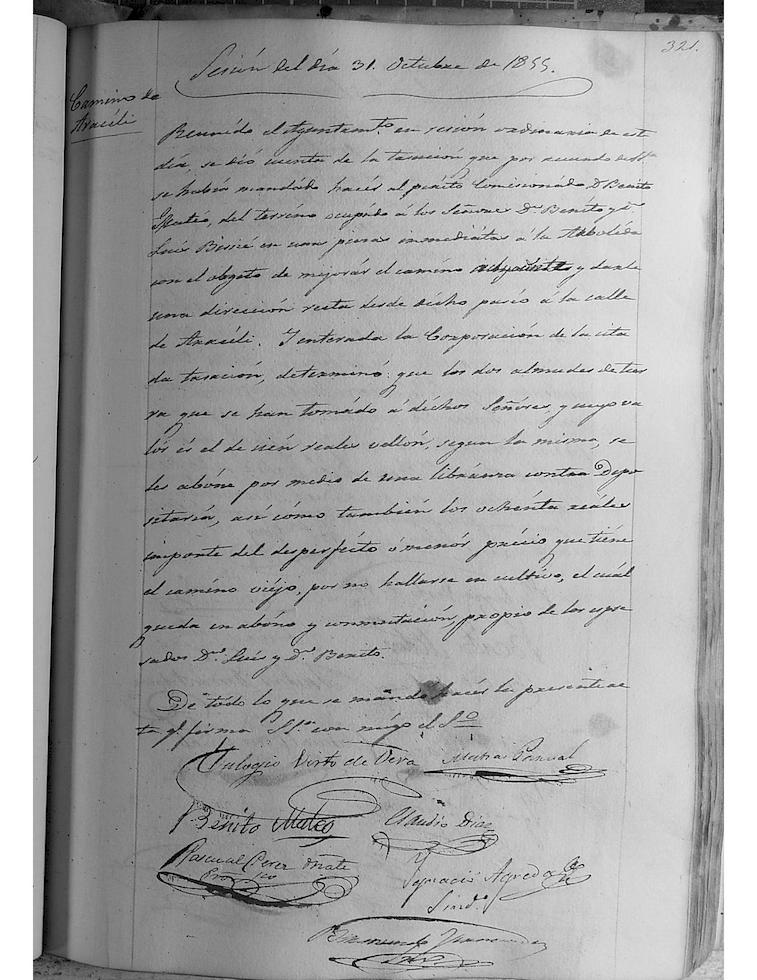 321.
Sesión del día 31. Octubre de 1855.
Camino de
Araciéli
Reunído el Ayuntam.to en sesión ordinaria de este
día, se dió cuenta de la tasación que por acuerdo
se había mandádo hacér al períto Comisionádo D. Benito
Matéo, del terréno ocupádo á los Señores D.n Benito y D.n
Luís en una pieza inmediáta á la Arboleda
con el objeto de mejorár el camíno y darle
una dirección recta desde dícho paséo á la calle
de Araciéli. Y enterada la Corporación de la cita
da tasación, determinó: que los dos almudes de tier
ra que se han tomádo á díchos Señóres, y cuyo va
lór és el de cién reales vellón, segun la misma, se
les abóne por medio de una libránza contra Depo
sitaría, así cómo también los ochénta reáles
impónte del desperfécto ó menór précio que tiéne
el camíno viéjo, por no hallarse en cultívo, el cuál
queda en abóno y conmutación, propio de los expre
sados D.n Luís y D.n Benito.
De tódo lo que se mándo hacér la presénte ac
ta q.e firma S.S.a con mígo el S.rio
Eulogio Virto de Vera Matias Pascual
Benito Mateo Claudio Diaz
Pascual Perez Oñate
Ignacio Agreda
Sínd.o